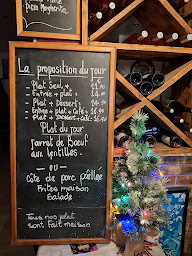 Pizza
Margherita
La proposition du jour
- Plat Seul → 11.90
- Entrée + plat → 14.90
- Plat + Dessert → 14.90
- Entrée + plat + Café → 16.90
- Plat + Dessert + Café → 16.90
Plat du jour
Jarret de Boeuf
aux lentilles.
- ou -
Côte de porc
Frites maison
Salade
Tous nos plat
sont fait maison